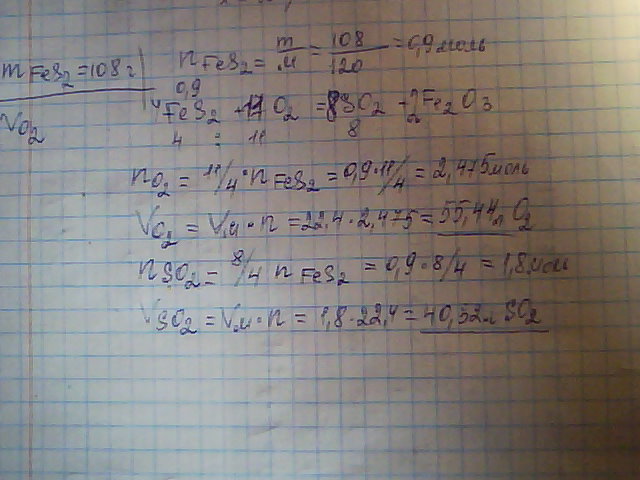 mFeS₂=108г
nFeS₂ = m/M = 108/120 = 0,9 моль
VO₂
0,9
4FeS₂ + 11O₂ = 8SO₂ + 2Fe₂O₃
4 : 11 8
nO₂ = 11/4 · nFeS₂ = 0,9·11/4 = 2,475 моль
VO₂ = Vм · n = 22,4 · 2,475 = 55,44 л O₂
nSO₂ = 8/4 nFeS₂ = 0,9 · 8/4 = 1,8 моль
VSO₂ = Vм · n = 1,8 · 22,4 = 40,52 л SO₂